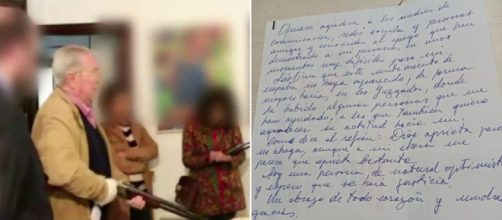 Quiero agradecer a los medios de
comunicación, redes sociales y personas
amigas y conocidas el apoyo que han
demostrado a mi persona, en unos
momentos muy difíciles para mí.
Lástima que este sentimiento de
empatía no haya aparecido, de forma
mayoritaria, en los Juzgados, donde
he habido algunas personas que me
han ayudado, a las que también quiero
agradecer su actitud hacia mí.
Como dice el refrán: Dios aprieta pero
no ahoga, aunque a mi ahora me
parece que aprieta bastante.
Soy una persona de natural optimista
y espero que se hará justicia.
Un abrazo de todo corazón y muchas
gracias.